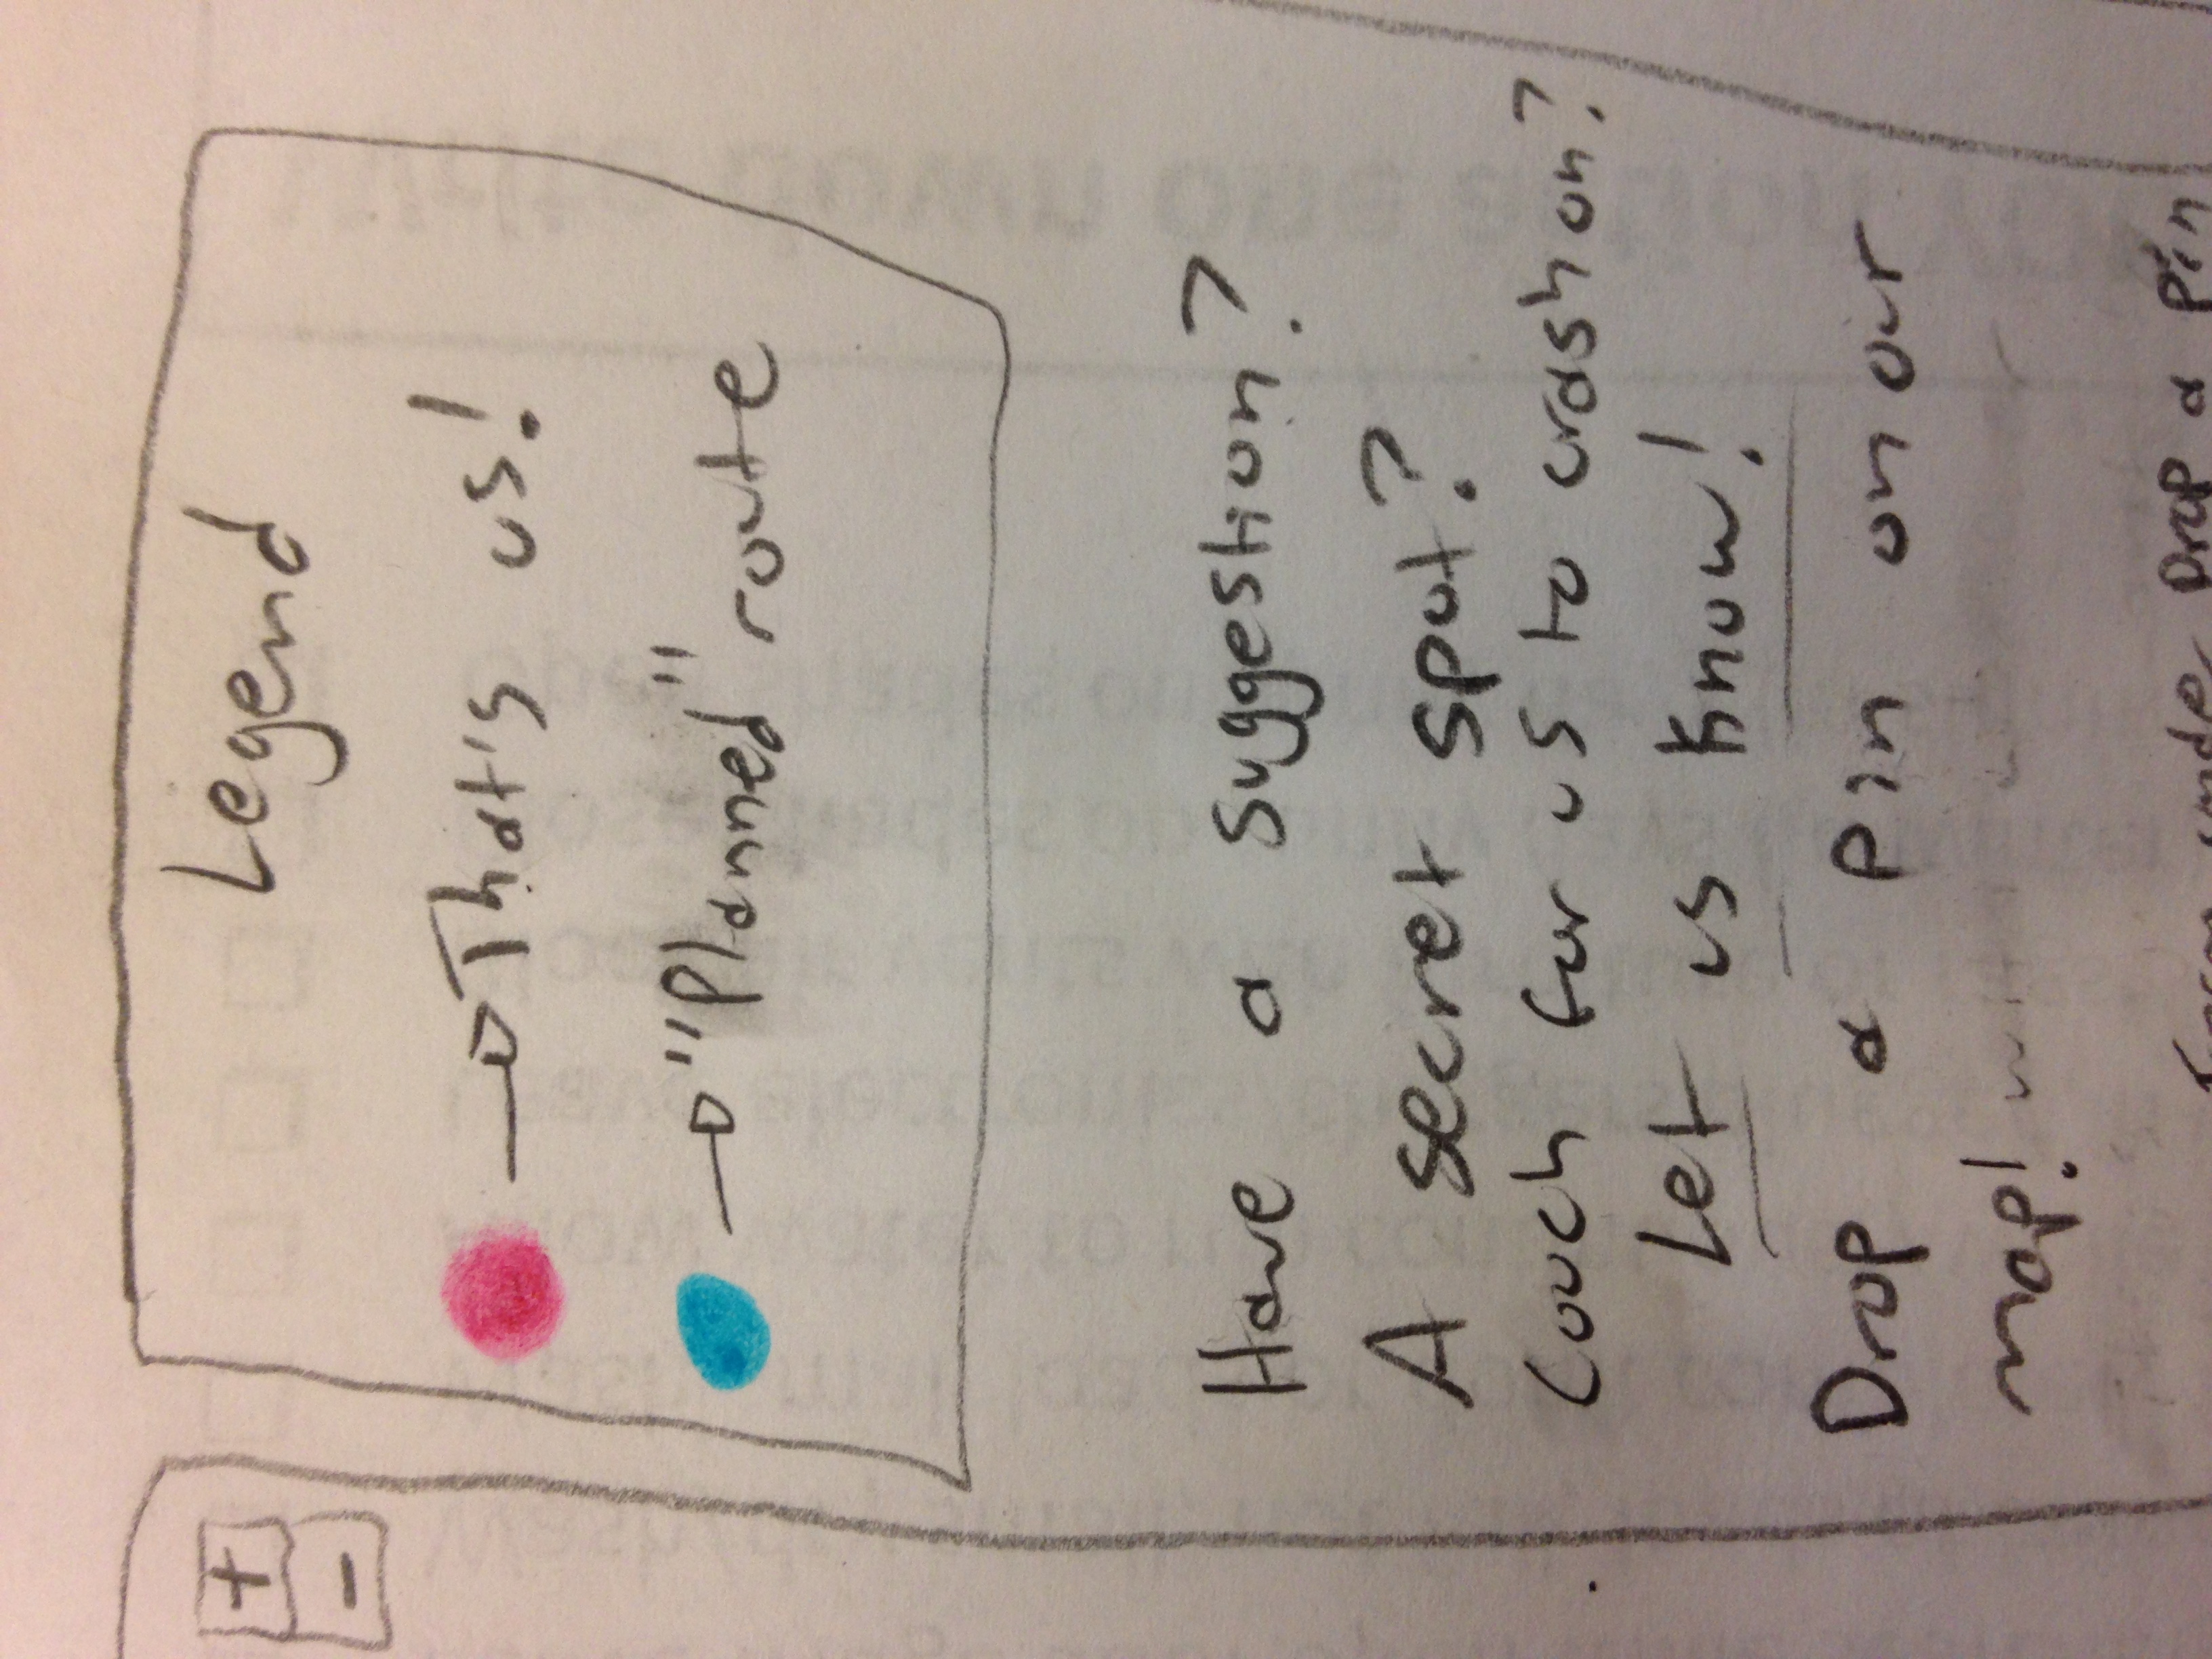 +
-
Legend
That's us!
"Planned" route
Have a suggestion?
A secret spot?
Couch for us to crash on?
Let us know!
Drop a pin on our
map!
under Drop a pin